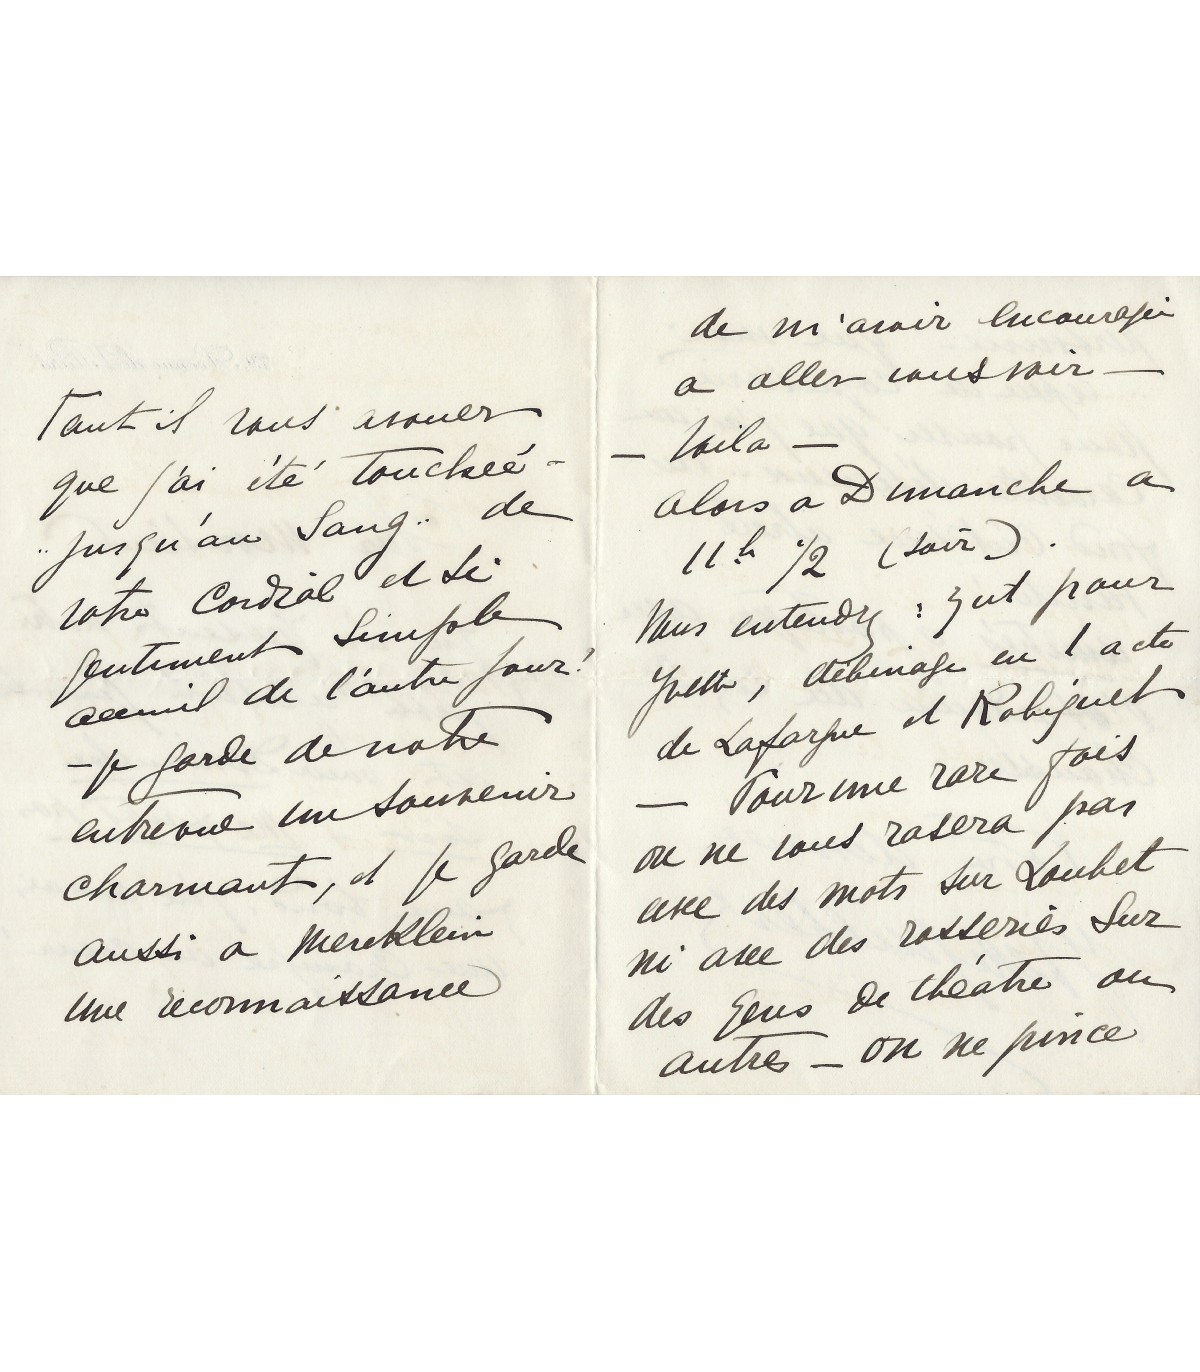 Faut il vous avouer
que j'ai été touchée -
"jusqu'au sang" de
votre cordial et si
gentiment simple
accueil de l'autre jour!
- je garde de notre
entrevue un souvenir
charmant, et je garde
aussi a Mercklein
une reconnaissance
de m'avoir encouragée
a aller vous voir —
— Voila —
alors a Dimanche a
11h 1/2 (soir).
Vous entendrez : zut pour
Yvette, débinage en 1 acte
de Lafargue et Robiquet
— Pour une rare fois
on ne vous rasera pas
avec des mots sur Loubet
ni avec des rosseries sur
des gens de théatre ou
autres — on ne pince